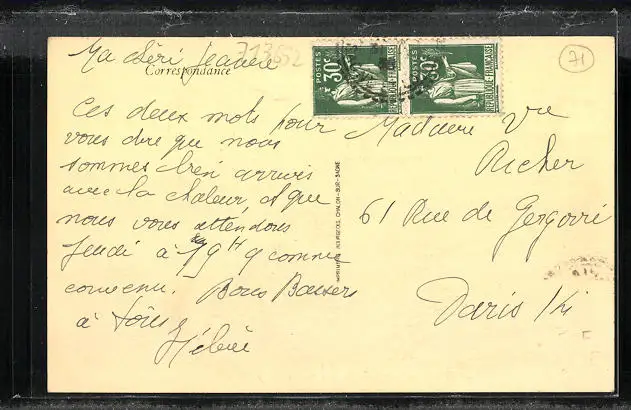 Ma chéri Jeanne
713652
Correspondance
Ces deux mots pour
vous dire que nous
sommes bien arrivés
avec la chaleur, et que
nous vous attendons
Jeudi à 19 H 9 comme
convenu. Bons Baisers
à tous
Hélène
POSTES
30c
REPUBLIQUE FRANÇAISE
POSTES
30c
REPUBLIQUE FRANÇAISE
71
Madame Vve
Richer
61 Rue de Gergovie
Paris 14
CHALON-SUR-SAONE